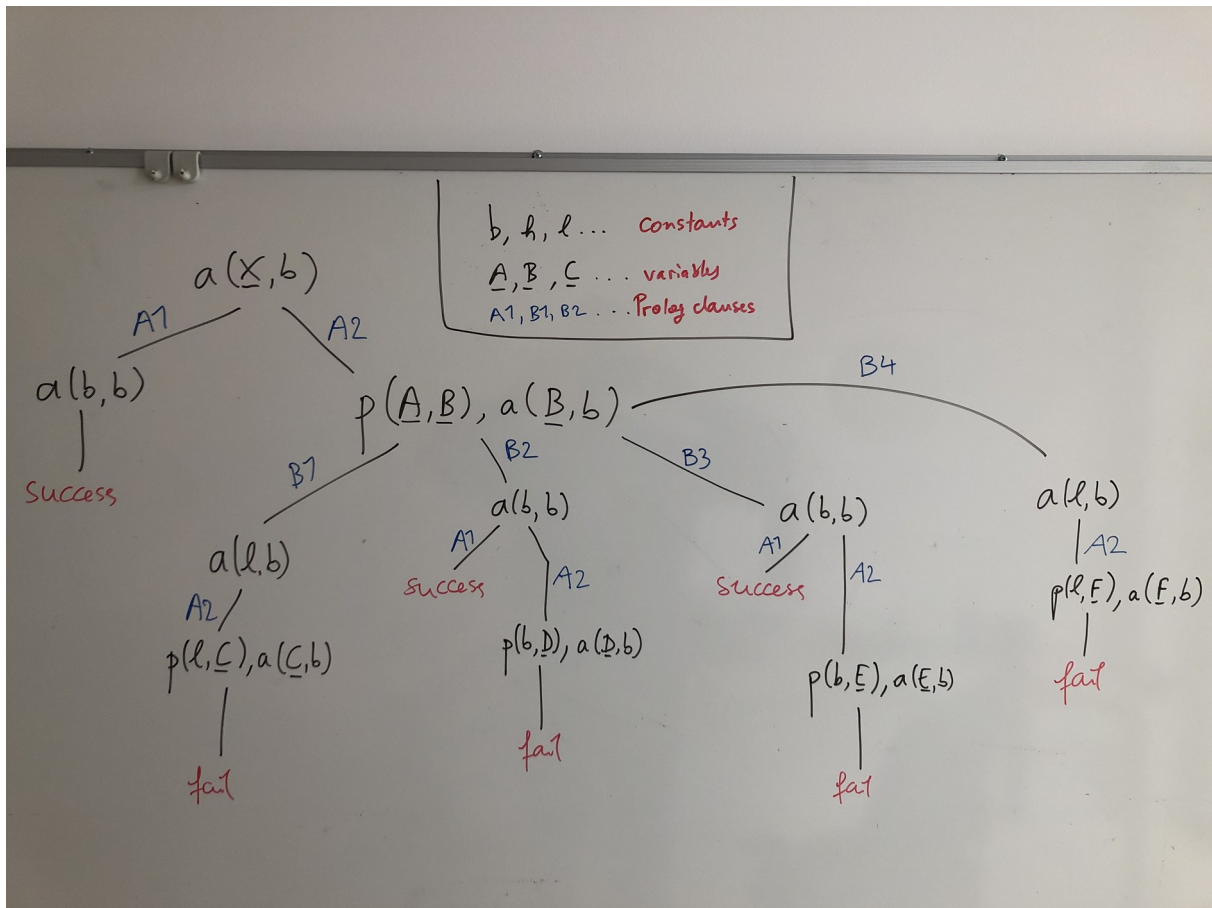 b, h, l ... constants
A, B, C ... variables
A1, B1, B2 ... Prolog clauses
a(X,b)
A1
A2
a(b,b)
success
p(A,B), a(B,b)
B1
B2
B3
B4
a(l,b)
A2
p(l,C), a(C,b)
fail
a(b,b)
A1
success
A2
p(b,D), a(D,b)
fail
a(b,b)
A1
success
A2
p(b,E), a(E,b)
fail
a(l,b)
A2
p(l,F), a(F,b)
fail